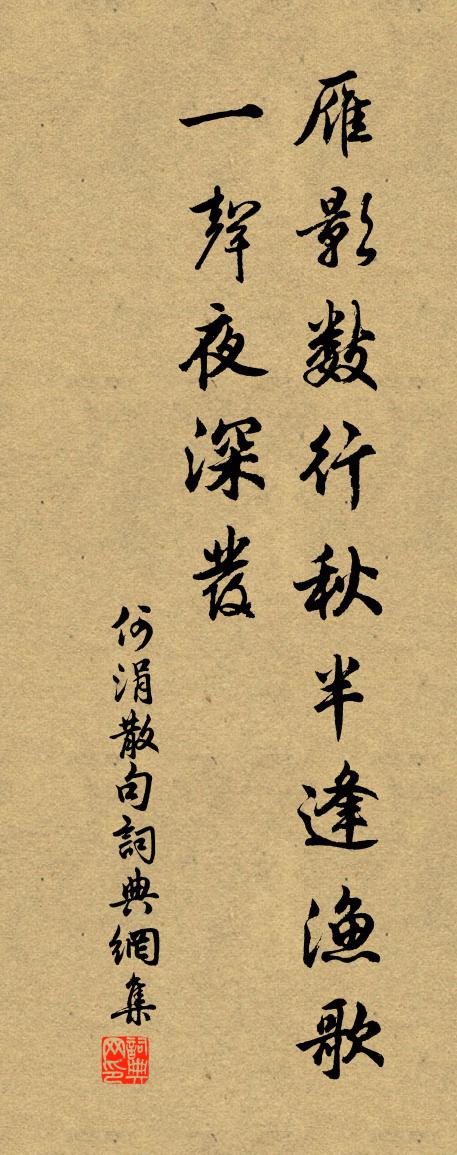 雁影數行秋半逢漁歌
一聲夜深發
何涓散句詞典網集
詞典网印